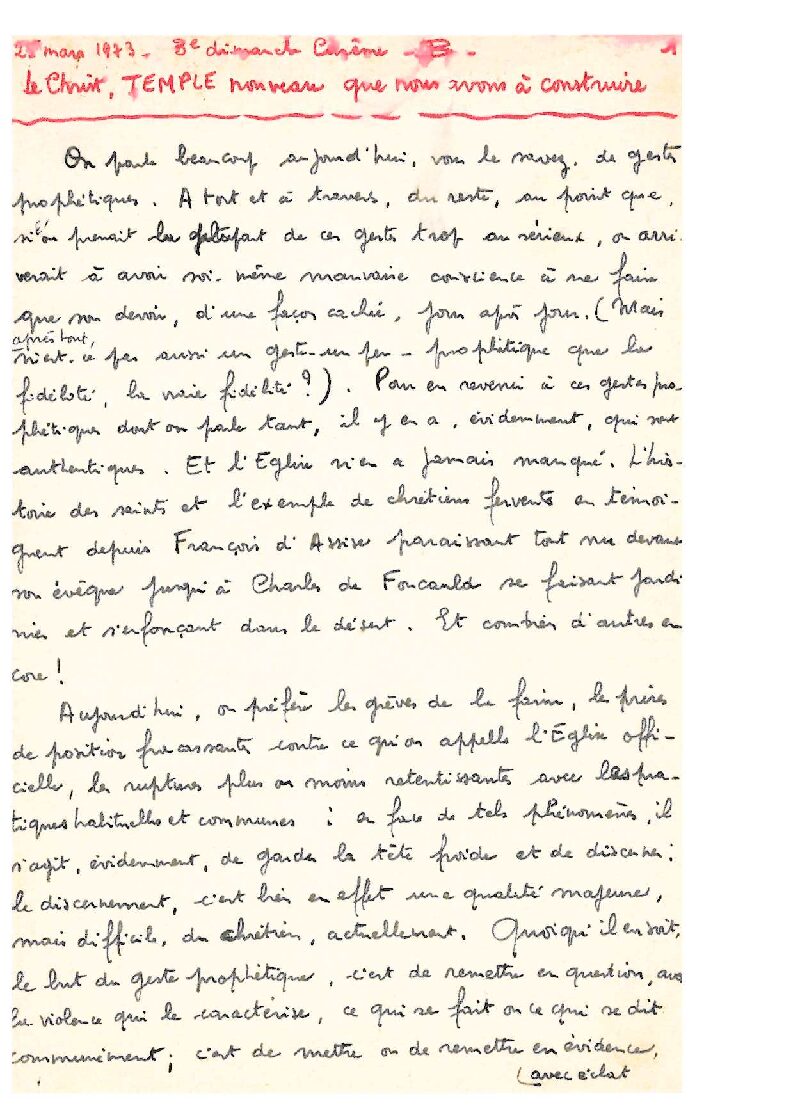 25 mars 1973 - 3e dimanche Carême - B - 1
Le Christ, TEMPLE nouveau que nous avons à construire
On parle beaucoup aujourd'hui, vous le savez, de gestes
prophétiques. A tort et à travers, du reste, au point que,
si l'on prenait la plupart de ces gestes trop au sérieux, on arri-
verait à avoir soi-même mauvaise conscience à ne faire
que son devoir, d'une façon cachée, jour après jour. (Mais
après tout,
n'est-ce pas aussi un geste-un peu-prophétique que la
fidélité, la vraie fidélité ?). Pour en revenir à ces gestes pro-
phétiques dont on parle tant, il y en a, évidemment, qui sont
authentiques. Et l'Eglise n'en a jamais manqué. L'his-
toire des saints et l'exemple de chrétiens fervents en témoi-
gnent depuis François d'Assise paraissant tout nu devant
son évêque jusqu'à Charles de Foucauld se faisant jardi
nier et s'enfonçant dans le désert. Et combien d'autres en
core !
Aujourd'hui, on préfère les grèves de la faim, les prises
de position fracassantes contre ce qu'on appelle l'Église offi-
cielle, les ruptures plus ou moins retentissantes avec les pra-
tiques habituelles et communes : en face de tels phénomènes, il
s'agit, évidemment, de garder la tête froide et de discerner ;
le discernement, c'est bien en effet une qualité majeure,
mais difficile, du chrétien, actuellement. Quoiqu'il en soit,
le but du geste prophétique, c'est de remettre en question, avec
la violence qui le caractérise, ce qui se fait ou ce qui se dit
communément ; c'est de mettre ou de remettre en évidence,
(avec éclat